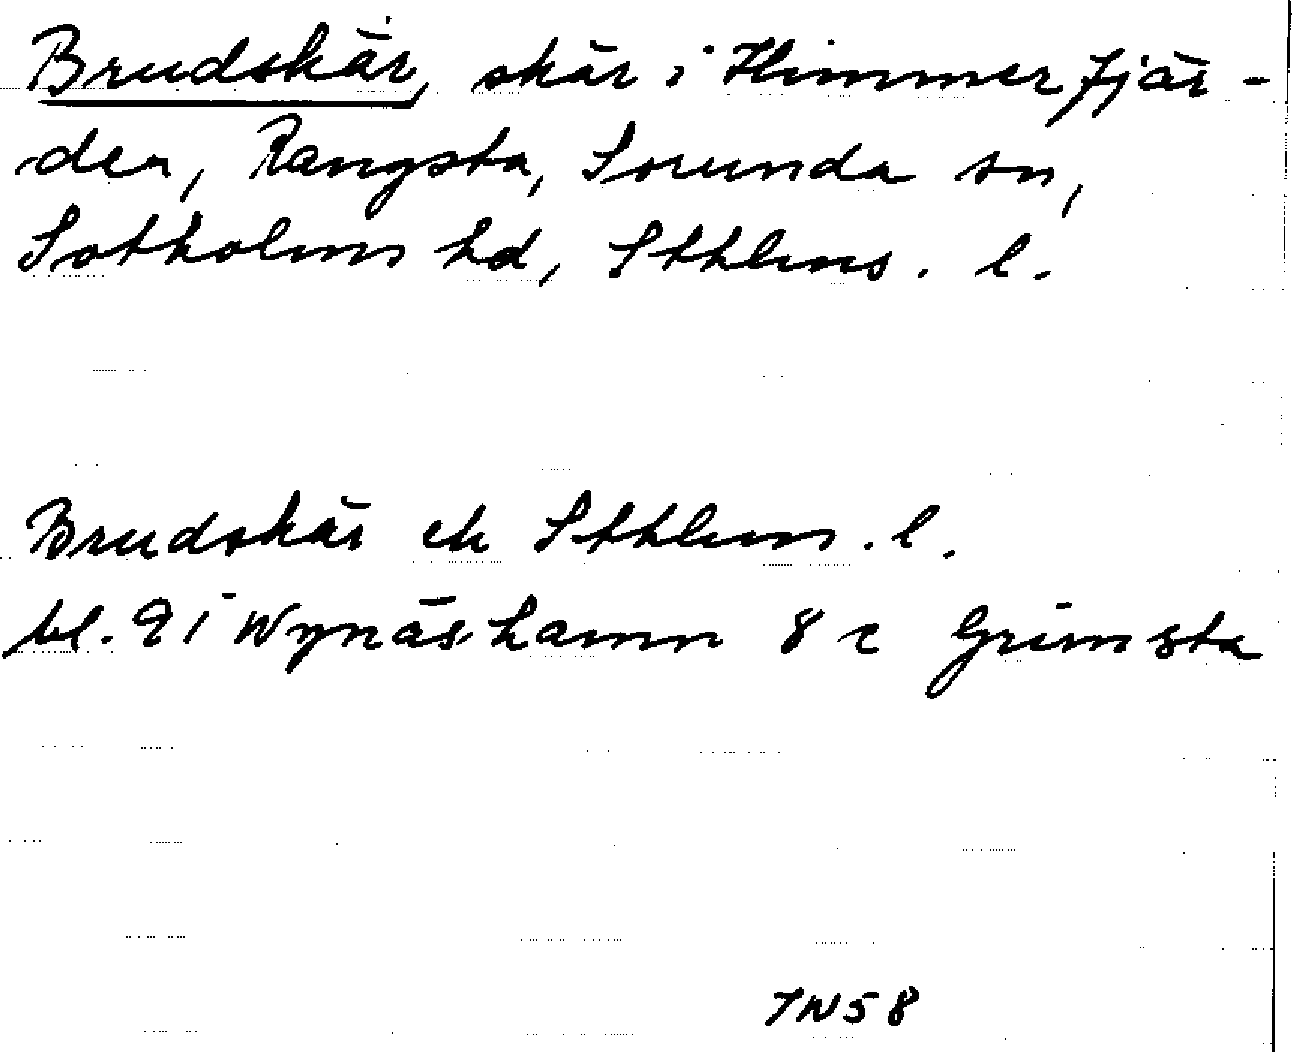 Brudskär, skär i Himmerfjär-
den, Rangsta, Sorunda sn,
Sotholms hd, Sthlms. l.
Brudskär ek Sthlms. l.
bl. 9 i Nynäshamn 8 c Grimsta
TN58